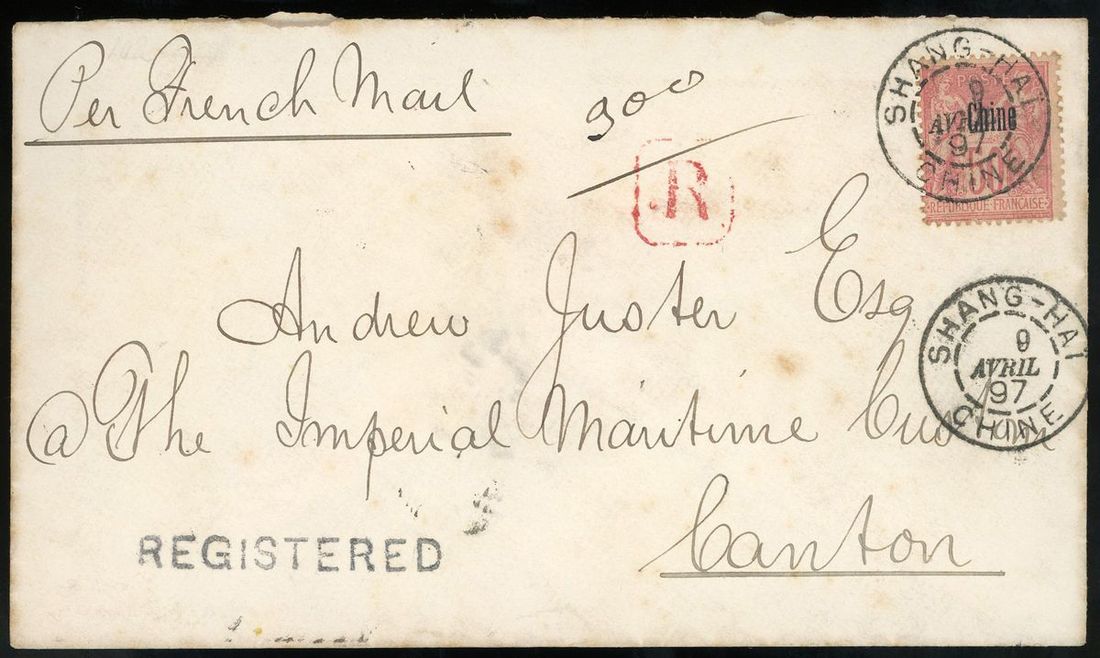 Per French Mail
900
R
POSTE
Chine
50
REPUBLIQUE FRANÇAISE
SHANG-HAÏ
9
AVRIL
97
CHINE
Andrew Juster Esq
SHANG-HAÏ
9
AVRIL
97
CHINE
@ The Imperial Maritime Customs
REGISTERED
Canton